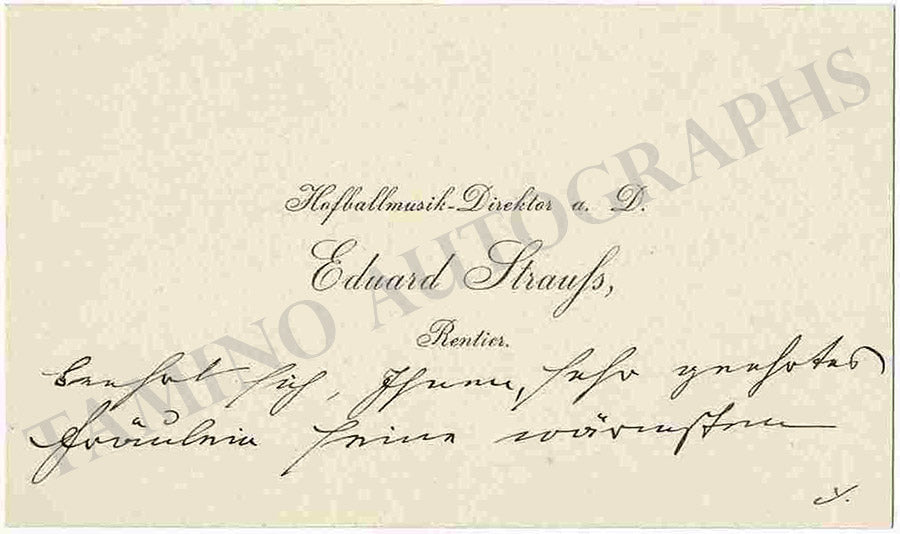 Hofballmusik-Direktor a. D.
Eduard Strauſs,
Rentier.
beehrt sich, Ihnen, sehr geehrtes
Fräulein seine wärmsten
TAMINO AUTOGRAPHS